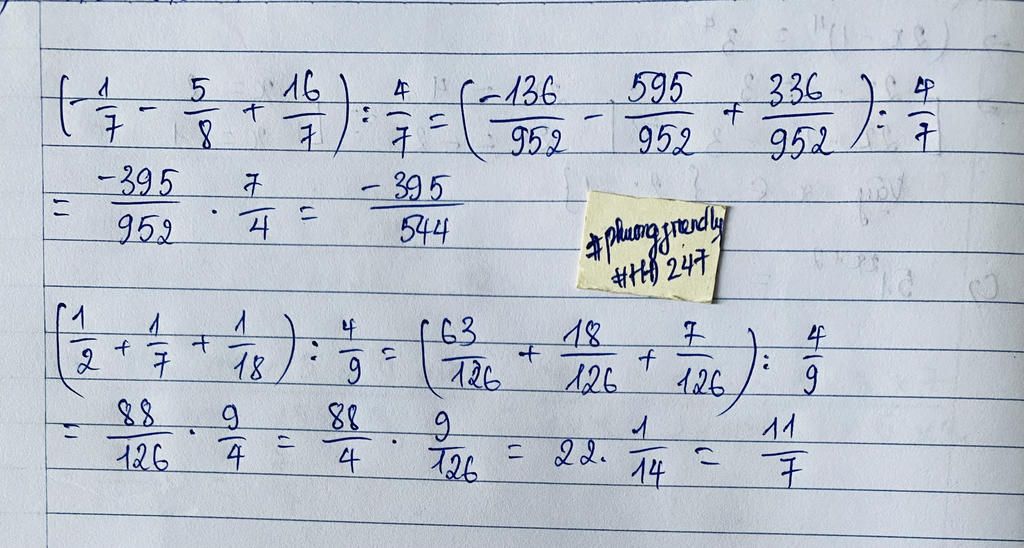 (-1/7 - 5/8 + 16/7) : 4/7 = (-136/952 - 595/952 + 336/952) : 4/7
= -395/952 . 7/4 = -395/544
#phuongfriendly
#HĐ 247
(1/2 + 1/7 + 1/18) : 4/9 = (63/126 + 18/126 + 7/126) : 4/9
= 88/126 . 9/4 = 88/4 . 9/126 = 22. 1/14 = 11/7